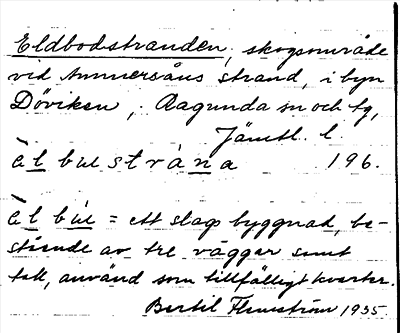 Eldbodstranden, skogsområde
vid Ammersåns strand, i byn
Döviken, Ragunda sn och tg,
Jämtl. l.
è l b ɯ s t r á n a 196.
è l b ɯ́ = ett slags byggnad, be-
stående av tre väggar samt
tak, använd som tillfälligt kvarter.
Bertil Flemström 1935.